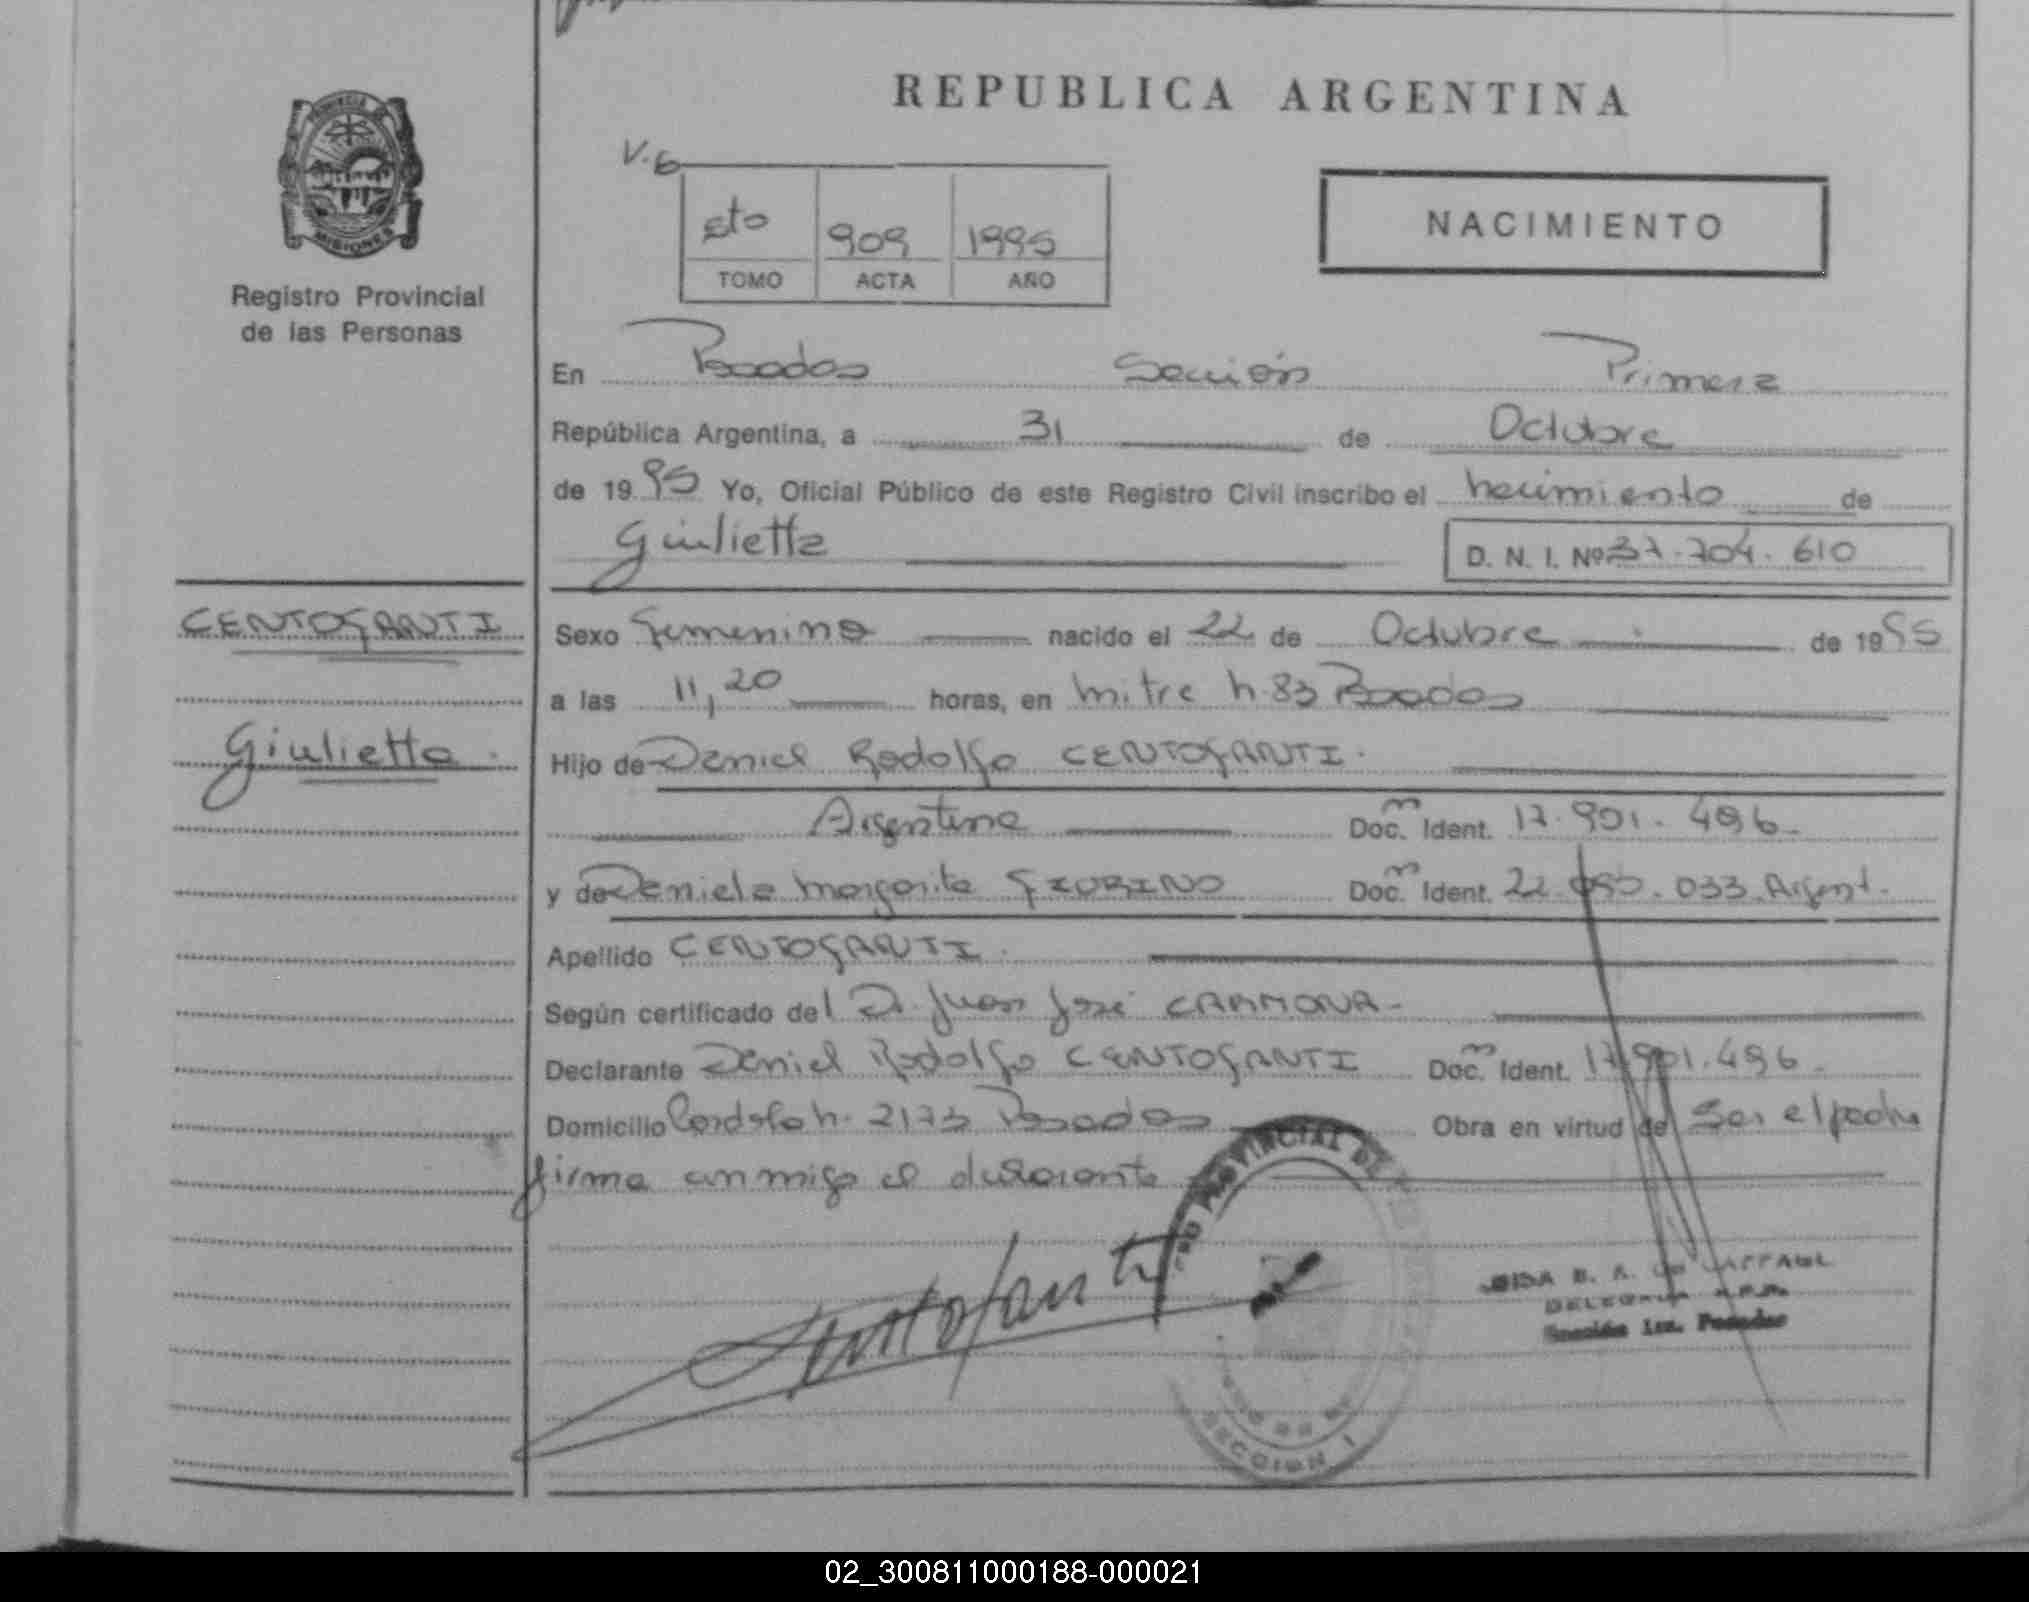 REPUBLICA ARGENTINA
PROVINCIA
MISIONES
Registro Provincial
de las Personas
V. 6
6to 909 1995
TOMO ACTA AÑO
NACIMIENTO
En Posadas Sección Primera
República Argentina, a 31 de Octubre
de 1995 Yo, Oficial Público de este Registro Civil inscribo el nacimiento de
Giulietta D. N. I. Nº 37.704.610
CENTOFANTI
Giulietta.
Sexo Femenino nacido el 22 de Octubre de 1995
a las 11,20 horas, en Mitre n. 83 Posadas
Hijo de Daniel Rodolfo CENTOFANTI.
Argentino Doc. Ident. 17.901.496.
y de Daniela Margarita FIORINO Doc. Ident. 22. .033 Argent.
Apellido CENTOFANTI.
Según certificado del Dr. Juan José CARMONA.
Declarante Daniel Rodolfo CENTOFANTI Doc. Ident. 17.901.496.
Domicilio Cordoba n. 2173 Posadas Obra en virtud de Ser el padre
firma conmigo el declarante
Centofanti
PROVINCIAL DE
SECCION I
DELEGADA
Sección 1ra. Posadas
02_300811000188-000021